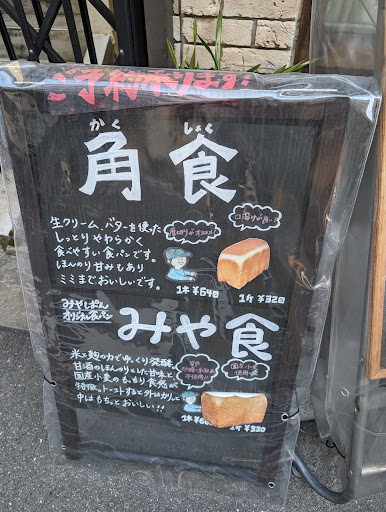 ご予約承ります!
かく しょく
角食
生クリーム、バターを使った
しっとりやわらかく
食べやすい食パンです。
ほんのり甘みもあり
ミミまでおいしいです。
厚切りがオススメ!
口溶けが良い
1本 ¥640
1斤 ¥320
みやしたぱん
オリジナル食パン
みや食
米と麹の力でゆっくり発酵
甘酒のほんのりとした甘味と
国産小麦のもっちり食感が
特徴。トーストすると外はカリッと
中はもちっとおいしい!!!
不使用!!
国産小麦
使用
1本
1斤 ¥330